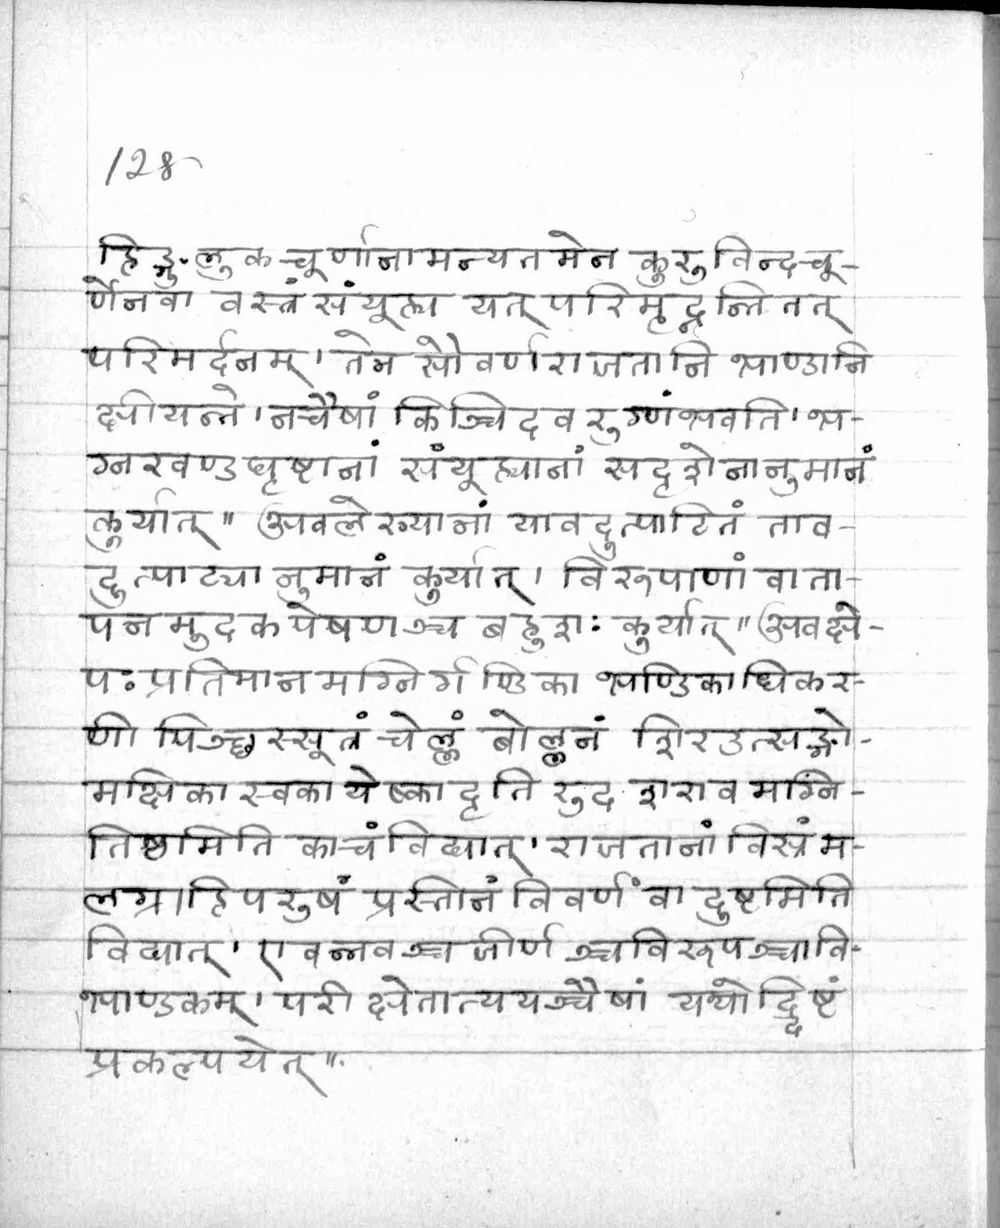 128
हिङ्गु-लुक चूर्णानामन्यतमेन कुरुविन्दचू-
र्णेनवा वस्त्रं संयूह्य यत् परिमृद्नन्ति तत्
परिमर्दनम् । तेन सौवर्णराजतानि भाण्डानि
क्षीयन्ते । नचैषां किञ्चिदवरुग्णंभवति । भ-
ग्नखण्डघृष्टानां संयूह्यानां सदृशेनानुमानं
कुर्यात् ॥ अवलेख्यानां यावदुत्पाटितं ताव-
दुत्पाट्यानुमानं कुर्यात् । विरूपाणां वा ता-
पनमुदकपेषणञ्च बहुशः कुर्यात् ॥ अवक्षे-
पः प्रतिमानमग्निर्गण्डिका भण्डिकाधिकर-
णी पिञ्छस्सूत्रं चेल्लं बोल्लनं शिरउत्सङ्गो-
मक्षिका स्वकायेष्कादृतिरुदशराव मग्नि-
तिष्ठमिति काचंविद्यात् । राजतानां विस्रंम-
लग्राहिपरुषं प्रस्तीनं विवर्णं वा दुष्टमिति
विद्यात् । एवन्नवञ्च जीर्णञ्चविरूपञ्चावि-
भाण्डकम् । परीक्षेतात्ययञ्चैषां यथोद्दिष्टं
प्रकल्पयेत् ॥